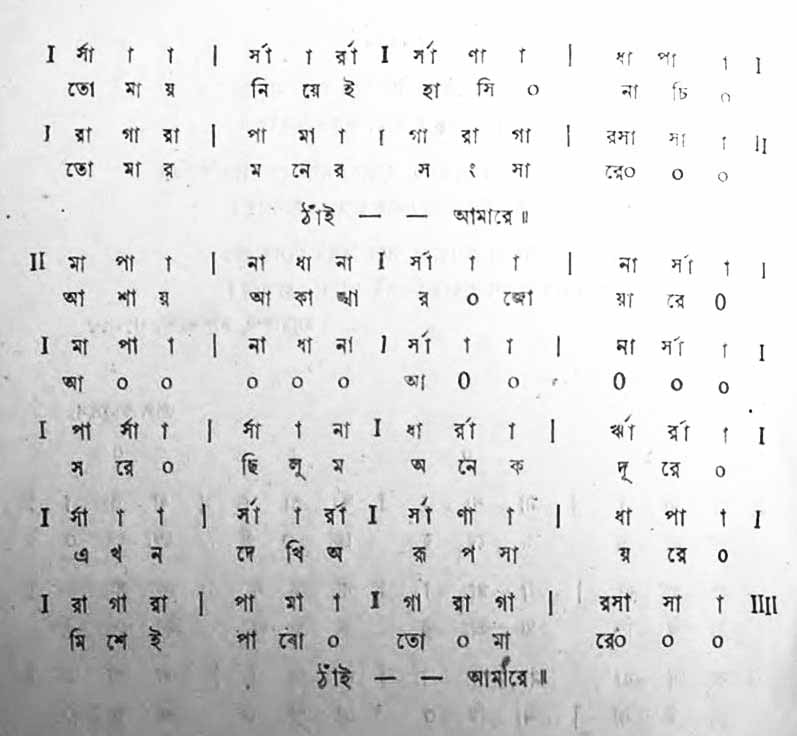 I র্সা া া | র্সা া র্রা I র্সা ণা া | ধা পা া I
তো মা য় নি য়ে ই হা সি ০ না চি ০
I রা গা রা | পা মা া I গা রা গা | রসা সা া II
তো মা র ম নের স ং সা রে০ ০ ০
ঠাঁই — — আমারে॥
II মা পা া | না ধা না I র্সা া া | না র্সা া I
আ শা য় আ কা ঙ্খা র ০ জো য়া রে 0
I মা পা া | না ধা না I র্সা া া | না র্সা া I
আ ০ ০ ০ ০ ০ আ 0 ০ 0 ০ ০
I পা র্সা া | র্সা া না I ধা র্রা া | র্ঋা র্রা া I
স রে ০ ছি লু ম অ নে ক দূ রে ০
I র্সা া া | র্সা া র্রা I র্সা ণা া | ধা পা া I
এ খ ন দে খি অ রূ প সা য় রে ০
I রা গা রা | পা মা া I গা রা গা | রসা সা া IIII
মি শে ই পা বো ০ তো ০ মা রে০ ০ ০
ঠাঁই — — আমারে॥